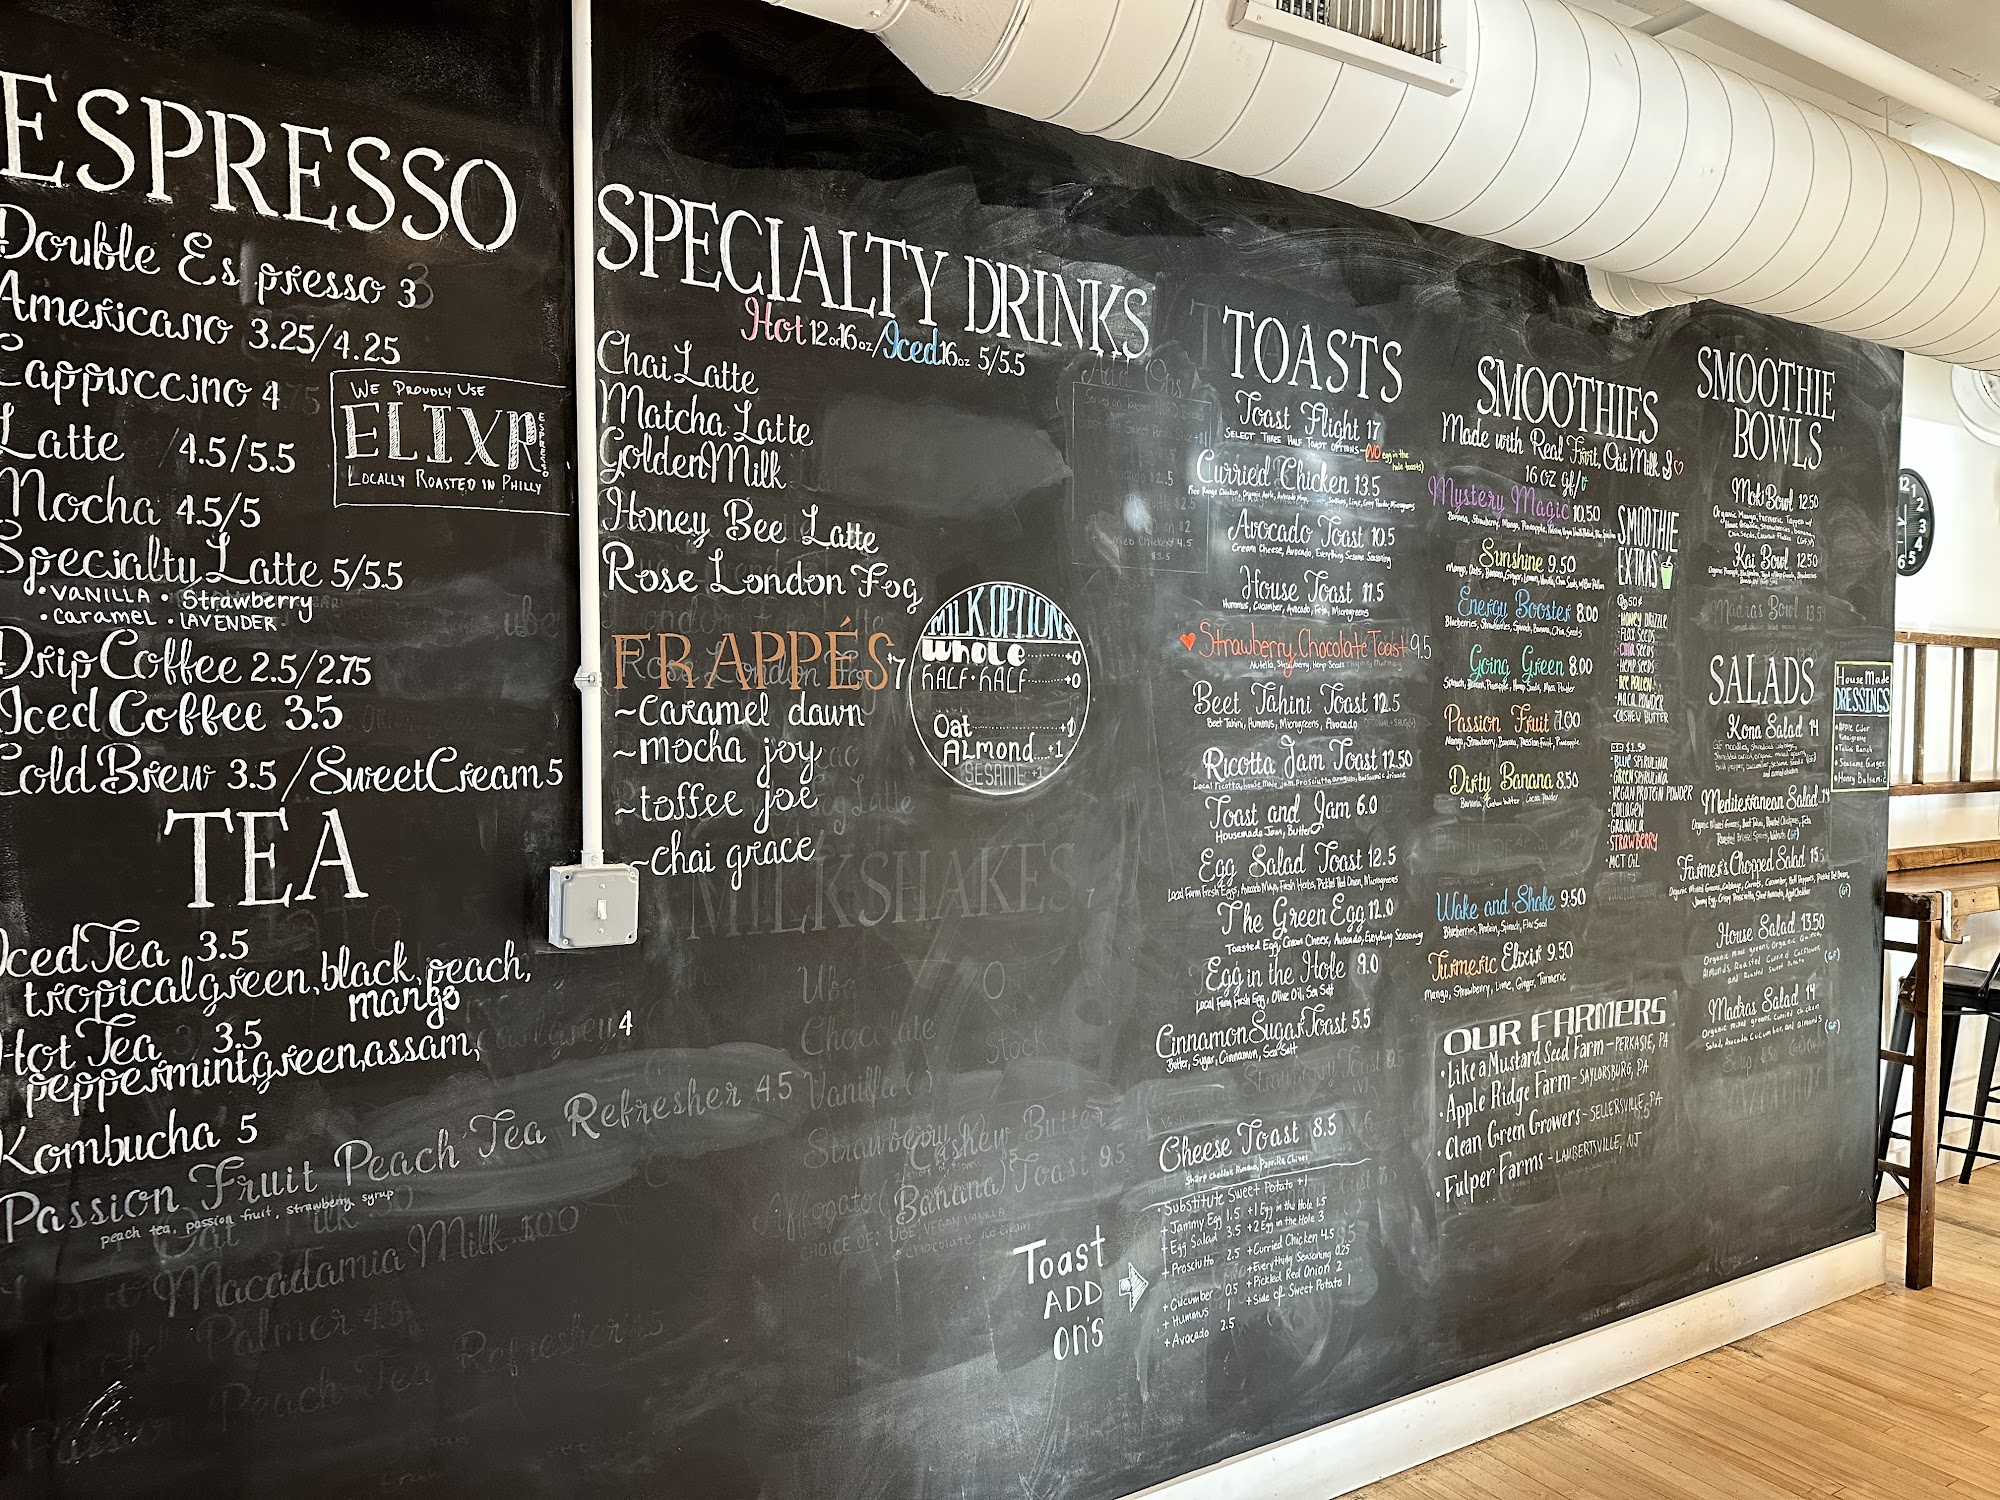 ESPRESSO
Double Espresso 3
Americano 3.25/4.25
Cappuccino 4
Latte 4.5/5.5
Mocha 4.5/5
Specialty Latte 5/5.5
• VANILLA • Strawberry
• caramel • LAVENDER
Drip Coffee 2.5/2.75
Iced Coffee 3.5
Cold Brew 3.5 / Sweet Cream 5
WE PROUDLY USE
ELIXR
ESPRESSO
LOCALLY ROASTED IN PHILLY
TEA
Iced Tea 3.5
tropical green, black, peach,
mango
Hot Tea 3.5
peppermint, green, assam,
4
Kombucha 5
Passion Fruit Peach Tea Refresher 4.5
peach tea, passion fruit, strawberry syrup
Macadamia Milk
Palmer
Peach Tea Refresher
SPECIALTY DRINKS
Hot 12 or 16 oz / Iced 16 oz 5/5.5
Chai Latte
Matcha Latte
Golden Milk
Honey Bee Latte
Rose London Fog
FRAPPÉS 7
~caramel dawn
~mocha joy
~toffee joe
~chai grace
MILK OPTIONS
Whole +0
HALF • HALF +0
Oat +1
Almond +1
SESAME +1
MILKSHAKES
Ube
Chocolate
Vanilla
Strawberry
Cashew Butter
Banana Toast 9.5
Affogato
CHOICE OF: UBE, VEGAN VANILLA
TOASTS
Toast Flight 17
SELECT THREE HALF TOAST OPTIONS - (NO egg in the
hole toasts)
Curried Chicken 13.5
Avocado Toast 10.5
Cream Cheese, Avocado, Everything Sesame Seasoning
House Toast 11.5
Hummus, Cucumber, Avocado, Feta, Microgreens
Strawberry Chocolate Toast 9.5
Nutella, Strawberry, Hemp Seeds
Beet Tahini Toast 12.5
Beet Tahini, Hummus, Microgreens, Avocado
Ricotta Jam Toast 12.50
Local ricotta, house made jam, prosciutto, arugula, balsamic drizzle
Toast and Jam 6.0
Housemade Jam, Butter
Egg Salad Toast 12.5
Local Farm Fresh Eggs, Avocado Mayo, Fresh Herbs, Pickled Red Onion, Microgreens
The Green Egg 12.0
Toasted Egg, Cream Cheese, Avocado, Everything Seasoning
Egg in the Hole 9.0
Local Farm Fresh Egg, Olive Oil, Sea Salt
Cinnamon Sugar Toast 5.5
Butter, Sugar, Cinnamon, Sea Salt
Cheese Toast 8.5
Toast
ADD
ON'S
• Substitute Sweet Potato +1
+ Jammy Egg 1.5 +1 Egg in the Hole 1.5
+ Egg Salad 3.5 +2 Egg in the Hole 3
+ Prosciutto 2.5 + Curried Chicken 4.5
+ Everything Seasoning 0.25
+ Cucumber 0.5 + Pickled Red Onion 2
+ Hummus 1 + Side of Sweet Potato 1
+ Avocado 2.5
SMOOTHIES
Made with Real Fruit, Oat Milk &
16 oz gf/v
Mystery Magic 10.50
Sunshine 9.50
Energy Booster 8.00
Blueberries, Strawberries, Spinach, Banana, Chia Seeds
Going Green 8.00
Spinach, Banana, Pineapple, Hemp Seeds, Maca Powder
Passion Fruit 7.00
Mango, Strawberry, Banana, Passion Fruit, Pineapple
Dirty Banana 8.50
Banana, Cashew Butter, Cocoa Powder
Wake and Shake 9.50
Blueberries, Protein, Spinach, Flax Seed
Turmeric Elixir 9.50
Mango, Strawberry, Lime, Ginger, Turmeric
SMOOTHIE
EXTRAS
50¢
• HONEY DRIZZLE
• FLAX SEEDS
• CHIA SEEDS
• HEMP SEEDS
• BEE POLLEN
• MACA POWDER
• CASHEW BUTTER
$1.50
• BLUE SPIRULINA
• GREEN SPIRULINA
• VEGAN PROTEIN POWDER
• COLLAGEN
• GRANOLA
• STRAWBERRY
• MCT OIL
OUR FARMERS
• Like a Mustard Seed Farm - PERKASIE, PA
• Apple Ridge Farm - SAYLORSBURG, PA
• Clean Green Growers - SELLERSVILLE, PA
• Fulper Farms - LAMBERTSVILLE, NJ
SMOOTHIE
BOWLS
Moki Bowl 12.50
Kai Bowl 12.50
Madras Bowl 13.5
SALADS
Kona Salad 14
Mediterranean Salad 14
Farmer's Chopped Salad 15.5
House Salad 13.50
Organic mixed greens, Organic Quinoa,
Almonds, Roasted Curried Cauliflower
and Roasted Sweet Potato (GF)
Madras Salad 14
Organic mixed greens, Curried Chicken
Salad, Avocado, Cucumber, and Almonds (GF)
House Made
DRESSINGS
• Apple Cider
Vinaigrette
• Tahini Ranch
• Sesame Ginger
• Honey Balsamic
12
1
2
3
4
5
6